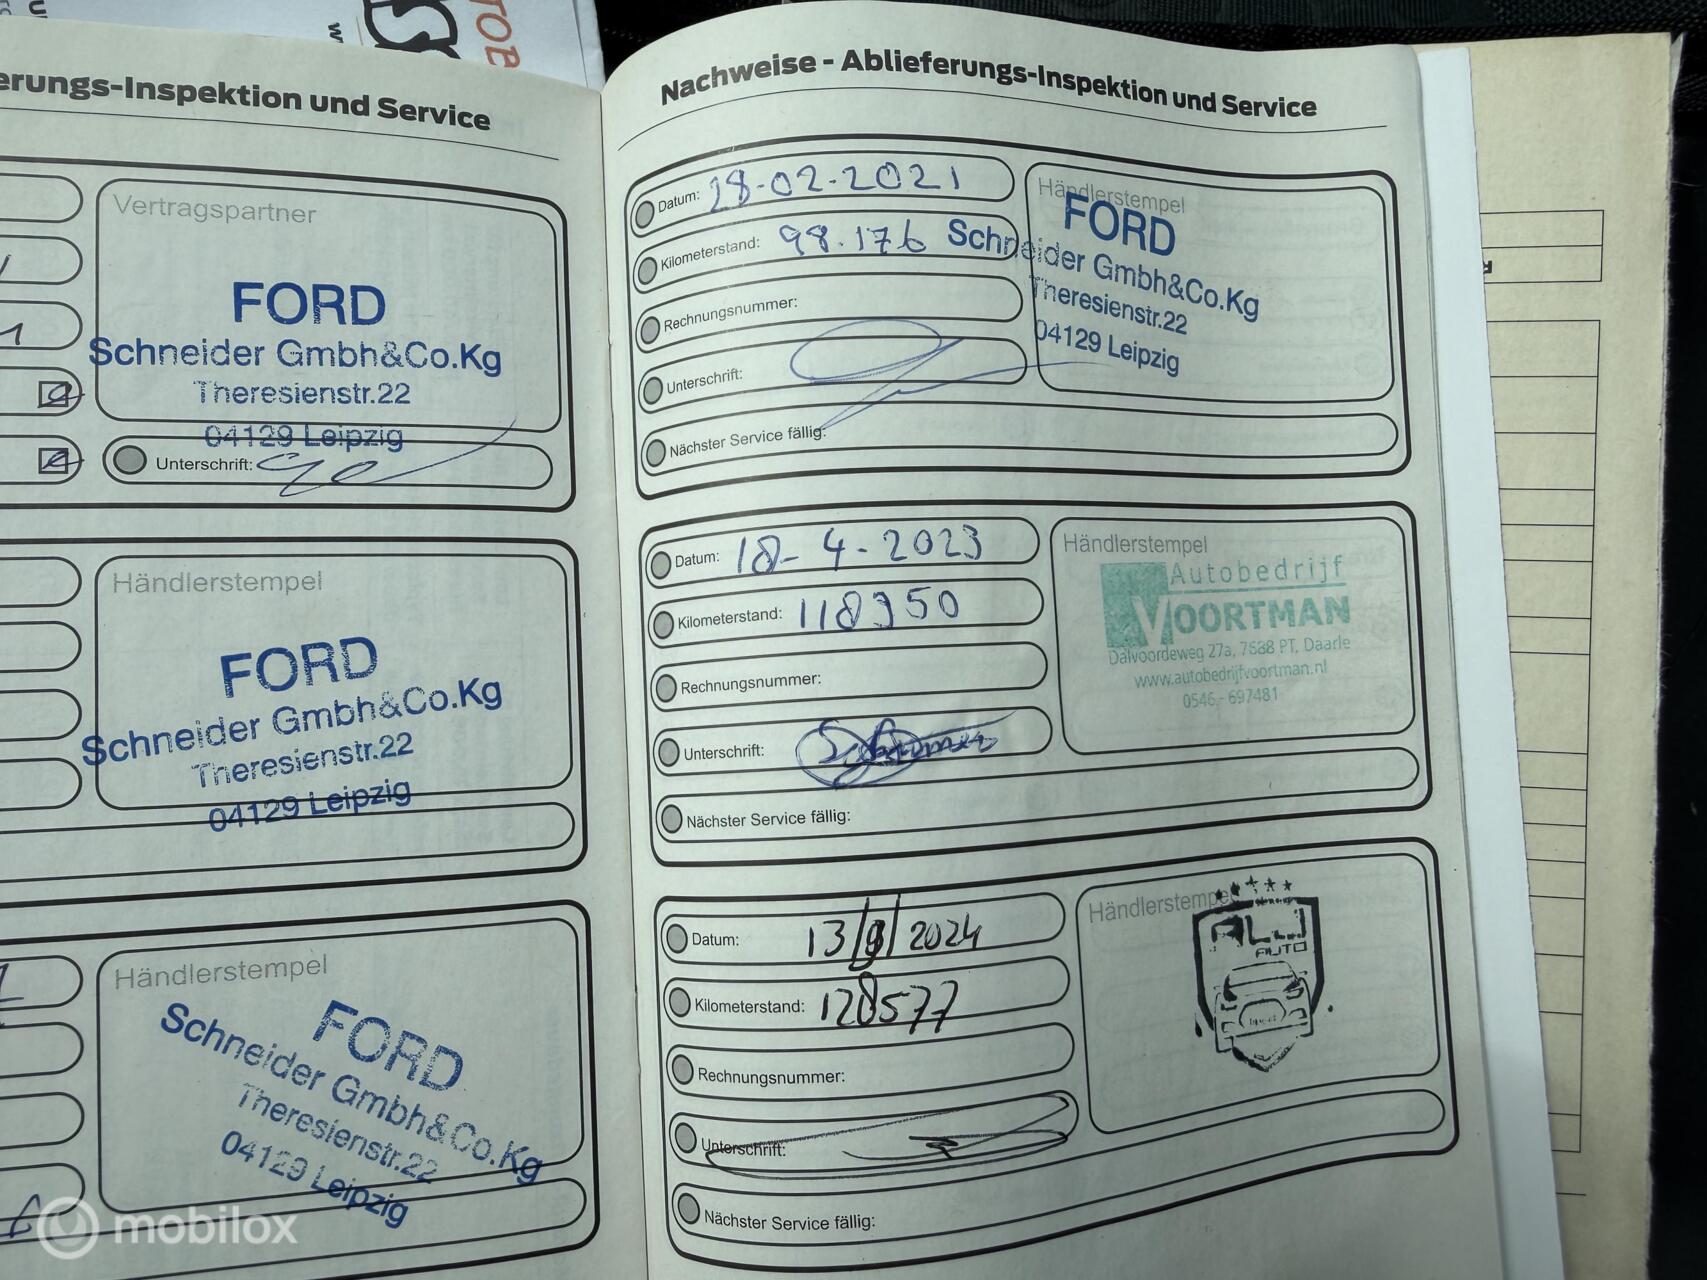 erungs-Inspektion und Service
Vertragspartner
FORD
Schneider Gmbh&Co.Kg
Theresienstr.22
04129 Leipzig
Unterschrift:
Händlerstempel
FORD
Schneider Gmbh&Co.Kg
Theresienstr.22
04129 Leipzig
Händlerstempel
FORD
Schneider Gmbh&Co.Kg
Theresienstr.22
04129 Leipzig
Nachweise - Ablieferungs-Inspektion und Service
Datum: 28-02-2021
Kilometerstand: 98.176
Rechnungsnummer:
Unterschrift:
Nächster Service fällig:
Händlerstempel
FORD
Schneider Gmbh&Co.Kg
Theresienstr.22
04129 Leipzig
Datum: 18-4-2023
Kilometerstand: 118950
Rechnungsnummer:
Unterschrift:
Nächster Service fällig:
Händlerstempel
Autobedrijf
VOORTMAN
Dalvoordeweg 27a, 7688 PT, Daarle
www.autobedrijfvoortman.nl
0546-697481
Datum: 13/9/2024
Kilometerstand: 128577
Rechnungsnummer:
Unterschrift:
Nächster Service fällig:
Händlerstempel
AUTO
mobilox